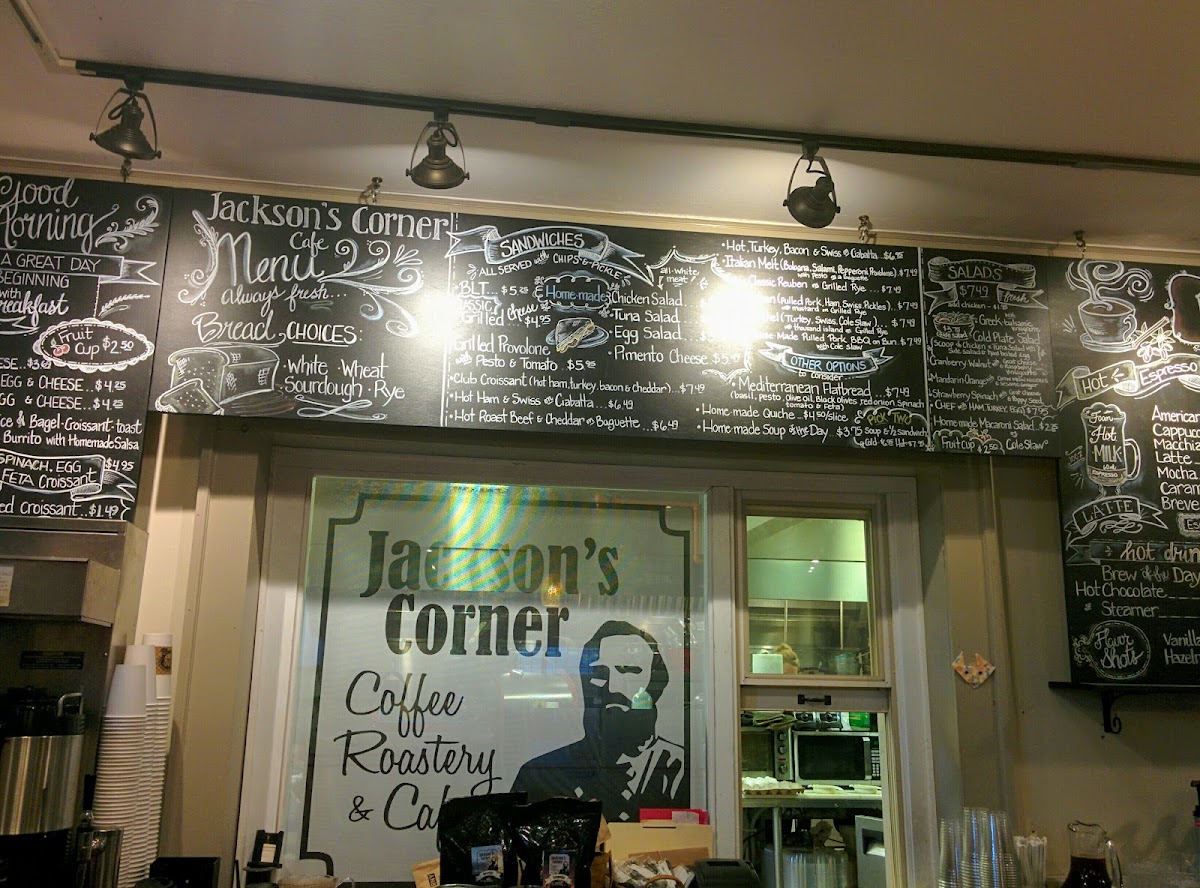 Good
Morning
A GREAT DAY
BEGINNING
with
Breakfast
Fruit
Cup $2.50
EGG & CHEESE...$4.25
EGG & CHEESE...$4.25
Bagel·Croissant·toast
Burrito with Homemade Salsa
SPINACH, EGG $4.95
FETA Croissant
Croissant..$1.49
Jackson's Corner
Cafe
Menu
Always fresh...
Bread CHOICES:
·White ·Wheat
·Sourdough ·Rye
SANDWICHES
ALL SERVED with CHIPS & PICKLE
·BLT... $5.25
CLASSIC
Grilled Cheese $4.95
Grilled Provolone
w/ Pesto & Tomato . $5.95
·Club Croissant (hot ham, turkey, bacon & cheddar)...$7.49
·Hot Ham & Swiss on Ciabatta...$6.49
·Hot Roast Beef & Cheddar on Baguette... $6.49
Home-made
all-white meat
Chicken Salad
Tuna Salad
Egg Salad
·Pimento Cheese
·Hot Turkey, Bacon & Swiss on Ciabatta..
·Italian Melt (Bologna, Salami, Pepperoni, Provolone) $7.49
with pesto on a baguette
Classic Reuben on Grilled Rye... $7.49
(Pulled Pork, Ham, Swiss, Pickles). $7.49
with mustard on Grilled Rye
(Turkey, Swiss, Cole Slaw)... $7.49
with thousand island on Grilled Rye
Made Pulled Pork BBQ on Bun. $7.49
with Cole slaw
OTHER OPTIONS
to Consider
·Mediterranean Flatbread... $7.49
(basil, pesto, Olive oil, Black olives, red onion, Spinach
tomato & Feta)
·Home-made Quiche. $4.50/slice
·Home-made Soup of the Day. $3.75
PICK TWO
Soup & ½ Sandwich
SALADS
$7.49
fresh
Greek
Cold Plate Salad
Cranberry Walnut
·Mandarin Orange
·Strawberry Spinach
·CHEF with HAM, TURKEY, EGG $7.95
Home made Macaroni Salad
Fruit Cup $2.50 Cole Slaw
Hot Espresso
Foam
Hot
MILK
ESPRESSO
LATTE
American
Cappucc
Macchia
Latte
Mocha
Caram
Breve
hot drin
Brew of the Day
Hot Chocolate
Steamer
Flavor
Shots
Vanill
Hazeln
Jackson's
Corner
Coffee
Roastery
& Ca